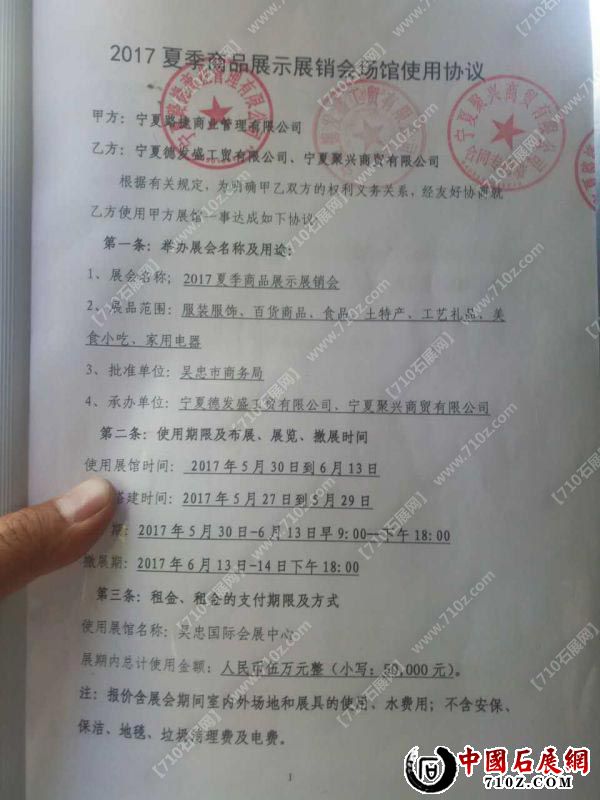 2017夏季商品展示展销会场馆使用协议
甲方：宁夏骆捷商业管理有限公司
乙方：宁夏德发盛工贸有限公司、宁夏聚兴商贸有限公司
根据有关规定，为明确甲乙双方的权利义务关系，经友好协商就
乙方使用甲方展馆一事达成如下协议：
第一条：举办展会名称及用途：
1、展会名称：2017夏季商品展示展销会
2、展品范围：服装服饰、百货商品、食品、土特产、工艺礼品、美
食小吃、家用电器
3、批准单位：吴忠市商务局
4、承办单位：宁夏德发盛工贸有限公司、宁夏聚兴商贸有限公司
第二条：使用期限及布展、展览、撤展时间
使用展馆时间：2017年5月30日到6月13日
搭建时间：2017年5月27日到5月29日
期：2017年5月30日-6月13日早9:00--下午18:00
撤展期：2017年6月13日-14日下午18:00
第三条：租金、租金的支付期限及方式
使用展馆名称：吴忠国际会展中心
展期内总计使用金额：人民币伍万元整（小写：50,000元）。
注：报价含展会期间室内外场地和展具的使用、水费用；不含安保、
保洁、地毯、垃圾清理费及电费。
1
宁夏聚兴商贸有限公司
合同专用章
【710石展网】 www.710z.com
中國石展網
710Z.COM